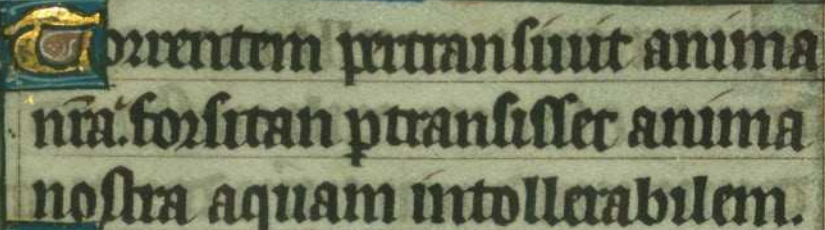 Torrentem pertransiuit anima
nr̃a. forsitan ꝑtransisset anima
nostra aquam intollerabilem.